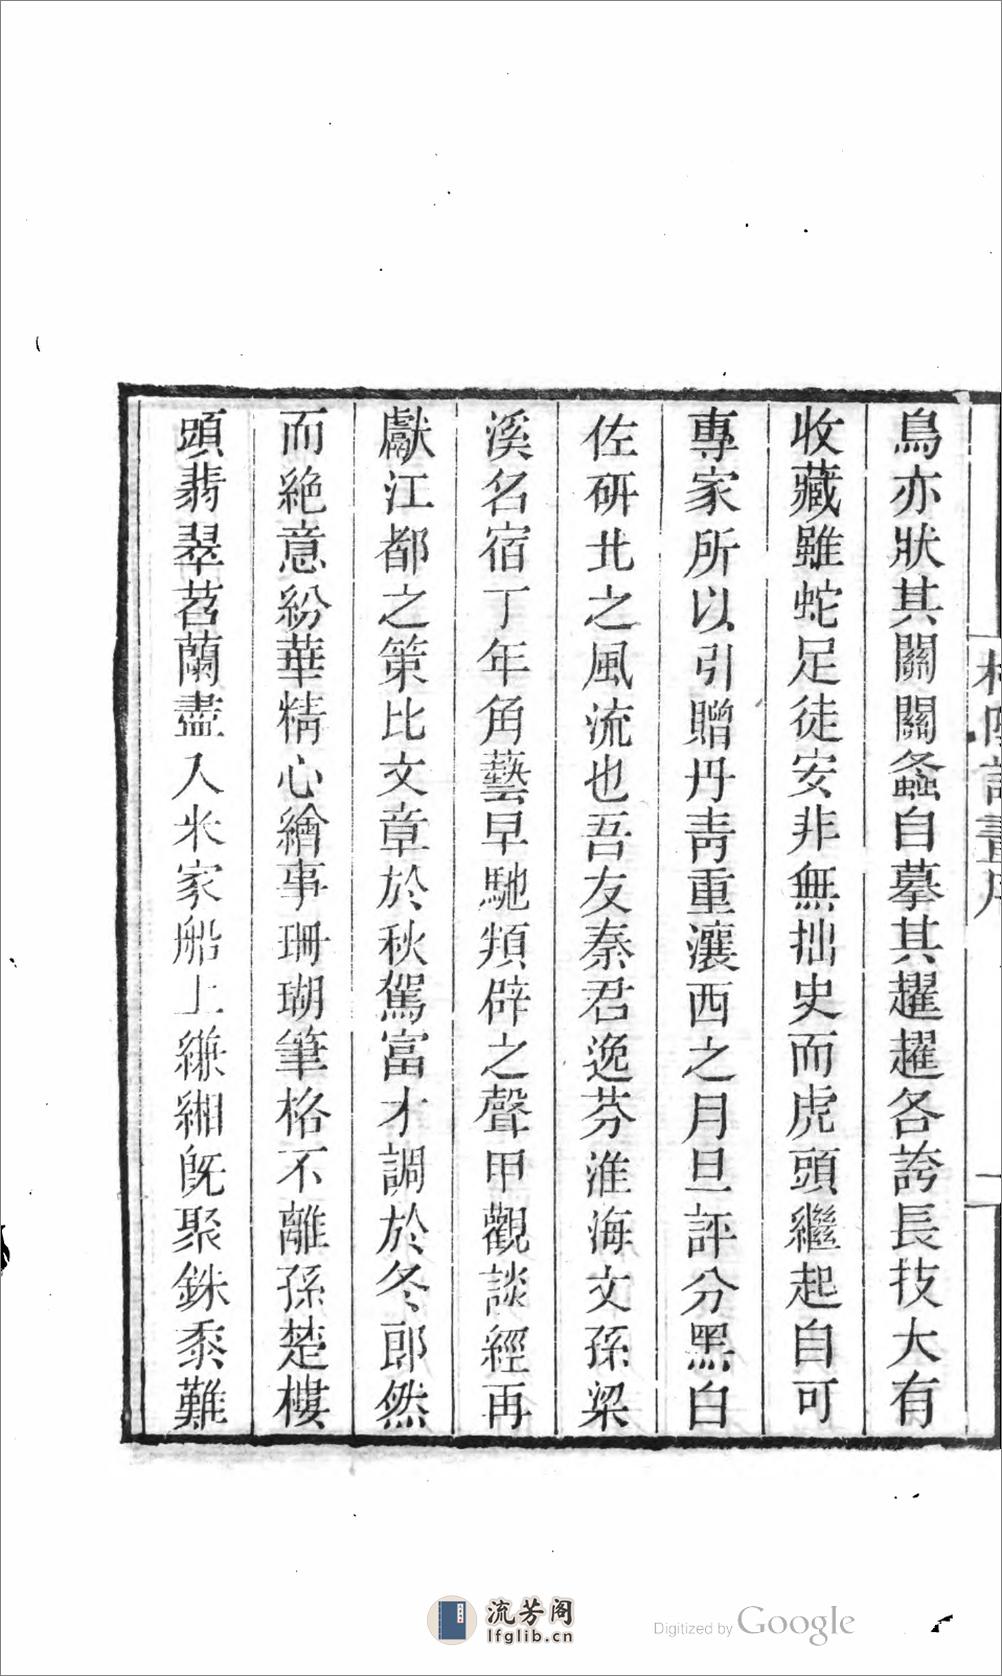 鳥亦狀其關關螽自摹其趯趯各誇長技大有
收藏雖蛇足徒安非無拙史而虎頭繼起自可
專家所以引贈丹靑重瀼西之月旦評分黑白
佐硏北之風流也吾友秦君逸芬淮海文孫梁
溪名宿丁年角藝早馳頖辟之聲甲觀談經再
獻江都之策比文章於秋駕富才調於冬郞然
而絶意紛華精心繪事珊瑚筆格不離孫楚樓
頭翡翠苕蘭盡入米家船上縑緗旣聚銖黍難
流芳阁
lfglib.cn
Digitized by Google